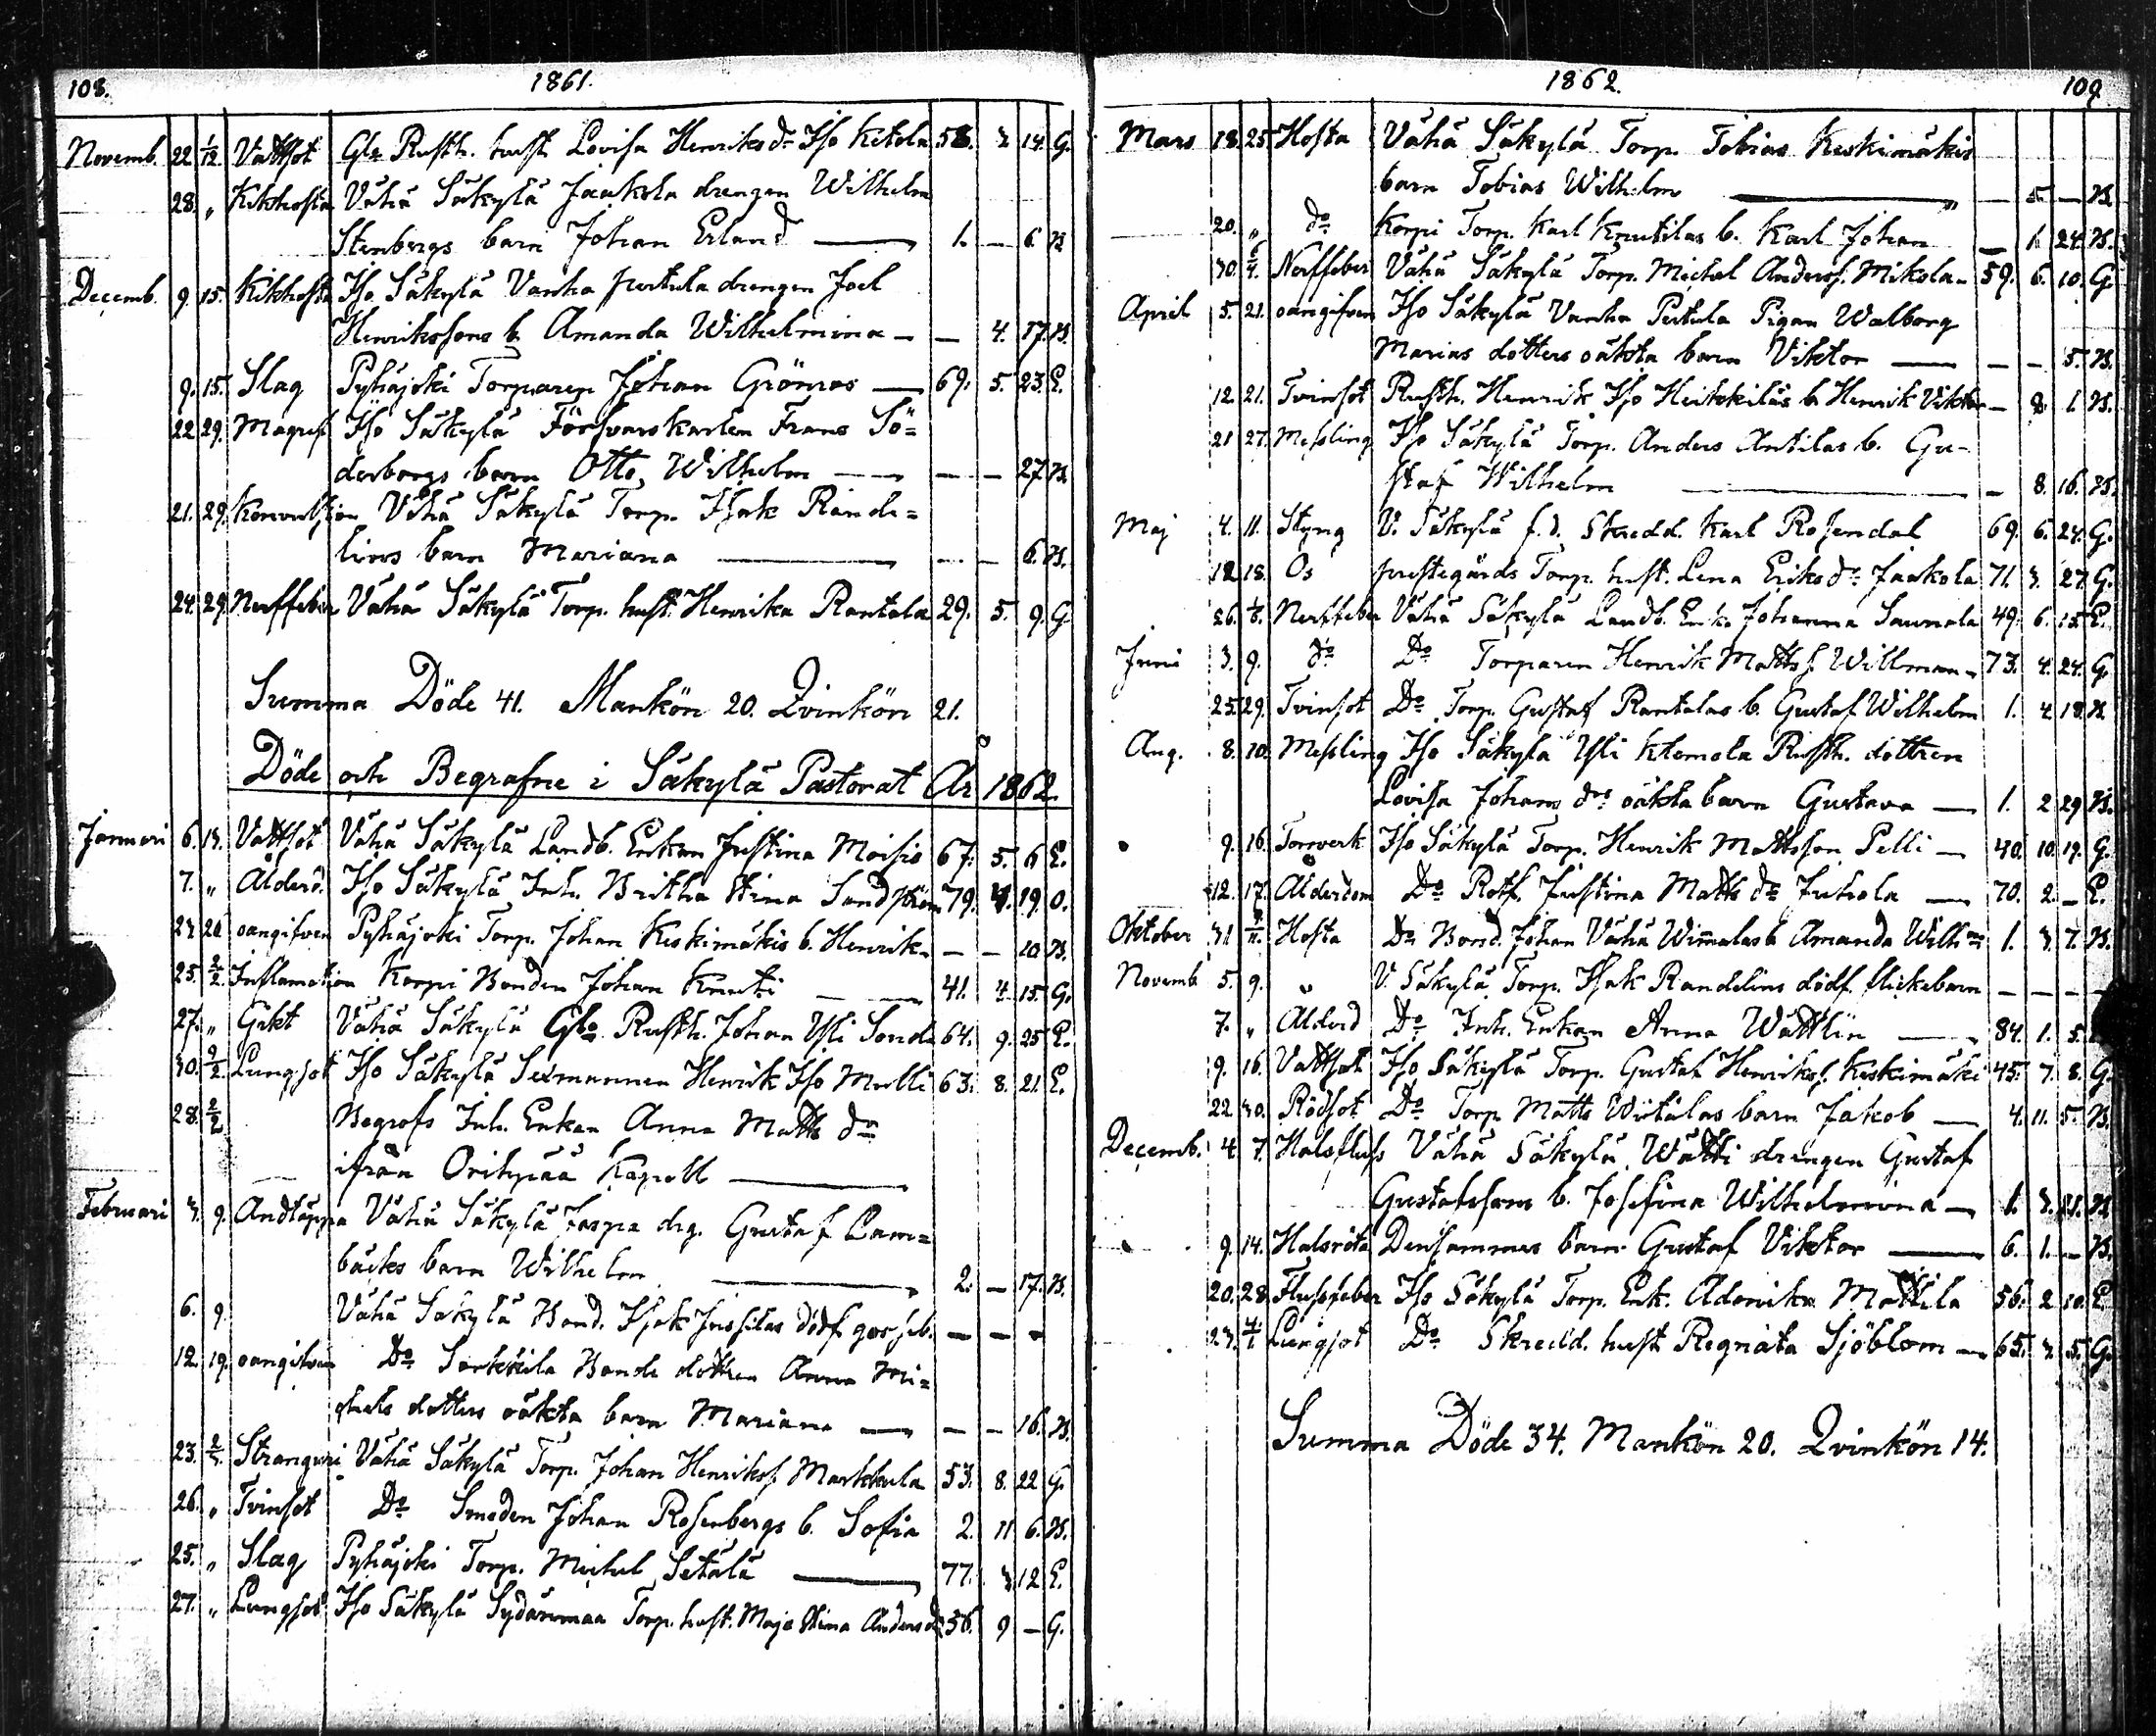 108. 1861.
Novemb. 22. 1/12 Vattsot Gle Rusth. hust. Lovisa Henriks dr Iso Ketola 58. 3. 14. G.
28. " Kikhosta Vähä Säkylä Jaakola drengen Wilhelm
Stenbergs barn Johan Erland — 1. — 6. B.
Decemb. 9. 15. Kikhosta Iso Säkylä Vanha Pertula drengen Joel
Henrikssons b. Amanda Wilhelmina — — 4. 17. B.
9. 15. Slag Pyhäjoki Torparen Johan Grönroos — 69. 5. 23. E.
22 29. Magref Iso Säkylä Försvarskarlen Frans Sö=
derborgs barn Otto Wilhelm — — — 27. B.
21. 29. Konvulsion Vähä Säkylä Torp. Isak Rande=
lins barn Mariana — — — 6. B.
24. 29. Nerffeber Vähä Säkylä Torp. hust. Henrika Rantala 29. 5. 9. G
Summa Döde 41. Mankön 20. Qvinkön 21.
Döde och Begrafne i Säkylä Pastorat År 1862.
Januari 6. 13. Vattsot Vähä Säkylä Landb. Enkan Justina Moisio 67. 5. 6 E.
7. " Ålderd. Iso Säkylä Inh. Britha Stina Sandström 79. 4. 19. O.
23 26 oangifven Pyhäjoki Torp. Johan Keskimäkis b. Henrik — — 10. B.
25. 2/2. Inflamation Korpi Bonden Johan Knuuti — 41. 4. 15. G.
27. " Gikt Vähä Säkylä Gle Rusth. Johan Yli Sonda 64. 9. 25 E.
30. 9/2. Lungsot Iso Säkylä Sexmannen Henrik Iso Mulli 63. 8. 21. E.
28. 2/2 Begrofs Inh. Enkan Anna Matts dr
ifrån Orihpää Kapell —
Februari 3. 9. Andtäppa Vähä Säkylä Jaspa drg. Gustaf Lam=
bäcks barn Wilhelm — 2. — 17. B.
6. 9. Vähä Säkylä Bond. Isak Jussilas dödf. gosseb. — — —
12. 19. oangifven Do Sorkkila Bonde dottren Anna Mi=
chels dotters oäkta barn Mariana — — — 16. B.
23. 2/3. Stranguri Vähä Säkylä Torp. Johan Henrikss. Markkula 53. 8. 22 G.
26. " Tvinsot Do Smeden Johan Rosenbergs b. Sofia 2. 11 6. B.
25. " Slag Pyhäjoki Torp. Michel Setälä — 77. 3. 12 E.
27. " Lungsot Iso Säkylä Sydänmaa Torp. hust. Maja Stina Anders dr 56. 9 — G.
1862. 109.
Mars 18. 25 Hosta Vähä Säkylä Torp. Tobias Keskimäkis
barn Tobias Wilhelm — — 5. — B.
20. " do Korpi Torp. Karl Knutilas b. Karl Johan — 1. 24. B.
30. 6/4. Nerffeber Vähä Säkylä Torp. Michel Anderss. Mikola 59. 6. 10. G.
April 5. 21. oangifven Iso Säkylä Vanha Pertula Pigan Walborg
Marias dotters oäkta barn Viktor — — — 5. B.
12. 21. Tvinsot Rusth. Henrik Iso Heikkiläs b. Henrik Viktor — 8. 1 B.
21 27. Messling Iso Säkylä Torp. Anders Antilas b. Gu-
staf Wilhelm — — 8. 16. B.
Maj 4. 11. Styng V. Säkylä f. d. Skredd. Karl Rosendal 69. 6. 24. G.
12 18. Os prestegårds Torp. hust. Lena Eriks dr Jaakola 71. 3. 27. G.
26. 1/6. Nerffeber Vähä Säkylä Landb. Enk. Johanna Saunala 49. 6. 15. E.
Juni 3. 9. do Do Torparen Henrik Mattss. Willman 73. 4. 24. G.
25. 29. Tvinsot Do Torp. Gustaf Rantalas b. Gustaf Wilhelm 1. 4. 18. B.
Aug. 8. 10. Messling Iso Säkylä Yli Klemola Rusth. dottren
Lovisa Johans drs oäkta barn Gustava — 1. 2. 29 B.
9. 16. Torrverk Iso Säkylä Torp. Henrik Mattsson Pelli — 40. 10. 19. G.
12. 17. Ålderdom Do Rotf. Justina Matts dr Juhola — 70. 2. — E.
Oktober 31. 9/11. Hosta Do Bond. Johan Vähä Wimalas b. Amanda Wilh.na 1. 3. 7. B.
Novemb. 5. 9. " V. Säkylä Torp. Isak Randelins dödf. flickebarn — — —
7. " Ålderd Do Inh. Enkan Anna Wättlin — 84. 1. 5.
9. 16. Vattsot Iso Säkylä Torp. Gustaf Henrikss. Keskimäki 45. 7. 8. G.
22. 30. Rödsot Do Torp. Matts Wirtalas barn Jakob — 4. 11. 5. B.
Decemb. 4. 7. Halsfluss Vähä Säkylä Wätti drengen Gustaf
Gustafssons b. Josefina Wilhelmina — 1. 3. 21. B.
9. 14. Halsröta Densammes barn Gustaf Viktor — 6. 1. — B.
20. 28. Flussfeber Iso Säkylä Torp. Enk. Adonika Mattila 56. 2. 10. E.
23. 4/1 Lungsot Do Skredd. hust Regnata Sjöblom — 65. 3. 5. G.
Summa Döde 34. Mankön 20. Qvinkön 14.